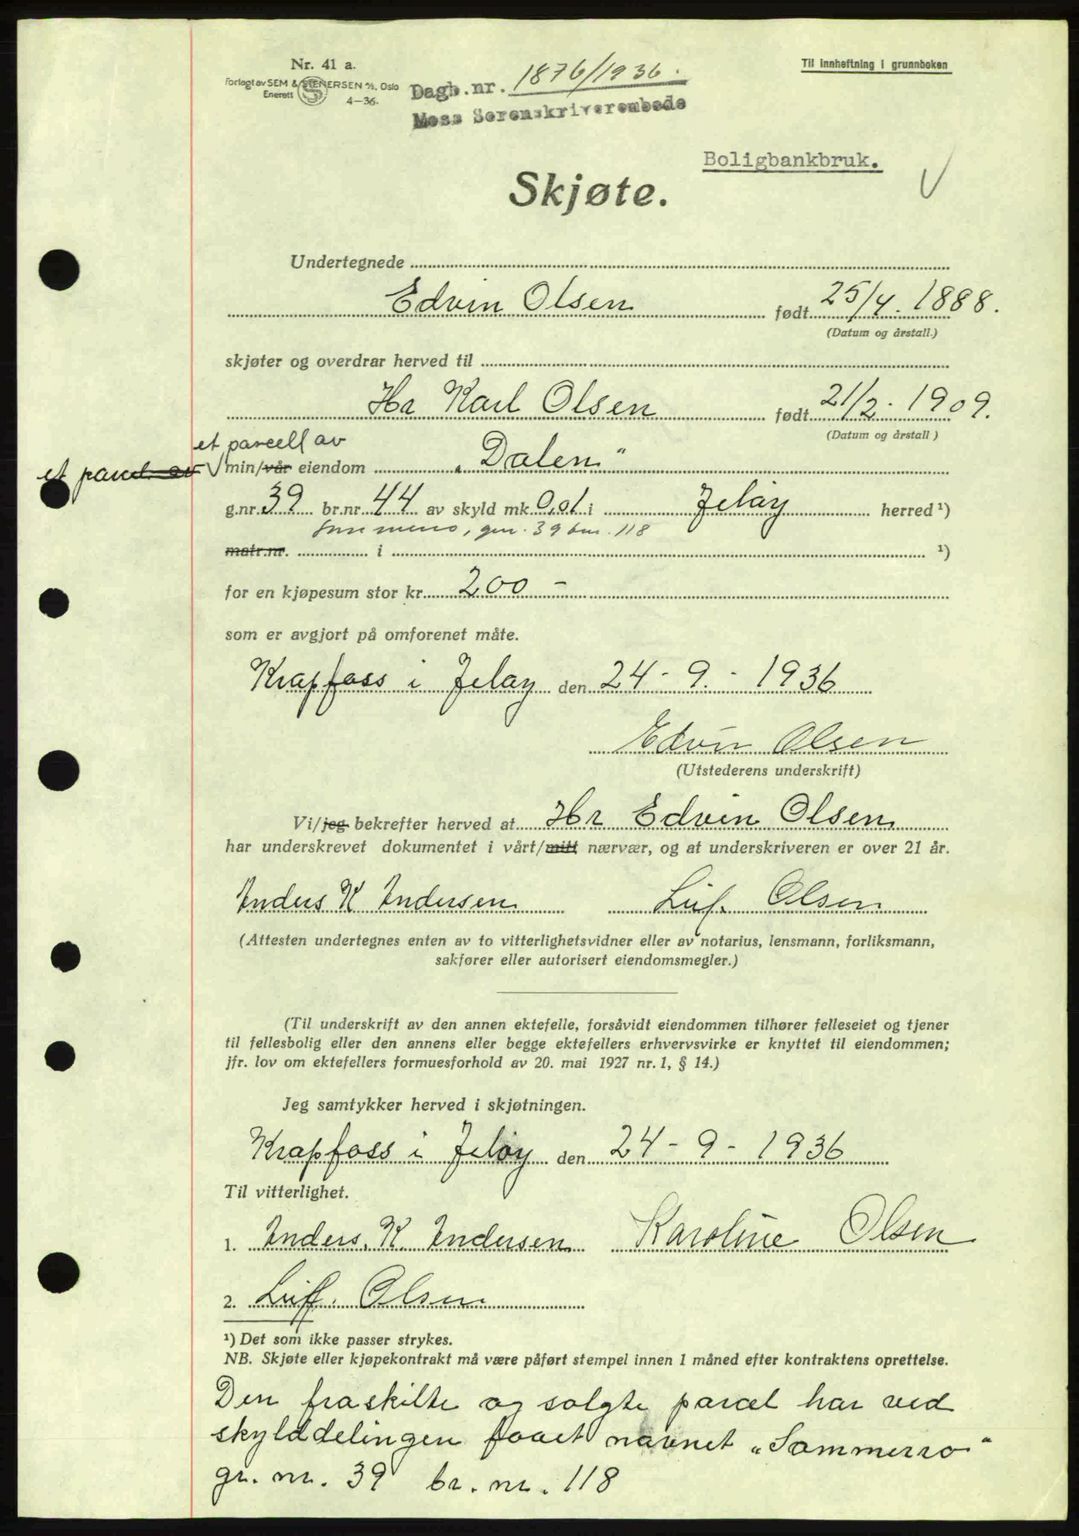 Nr. 41 a.
Til innheftning i grunnboken
Forlagt av SEM & STENERSEN A/S, Oslo
Enerett 4-36.
Dagb.nr. 1876/1936.
Moss Sorenskriverembede
Boligbankbruk.
Skjøte.
Undertegnede
Edvin Olsen født 25/4. 1888.
(Datum og årstall.)
skjøter og overdrar herved til
Hr Karl Olsen født 21/2. 1909.
(Datum og årstall)
et parcell av
et parcel av min/vår eiendom „Dalen“
g.nr. 39 br.nr. 44 av skyld mk. 0,01 i Jeløy herred ¹)
gnr. 39 bnr. 118
matr.nr. i ¹)
for en kjøpesum stor kr. 200 –
som er avgjort på omforenet måte.
Krapfoss i Jeløy den 24 - 9. - 1936
Edvin Olsen
(Utstederens underskrift)
Vi/jeg bekrefter herved at Hr Edvin Olsen
har underskrevet dokumentet i vårt/mitt nærvær, og at underskriveren er over 21 år.
Anders K Andersen Leif Olsen
(Attesten undertegnes enten av to vitterlighetsvidner eller av notarius, lensmann, forliksmann,
sakfører eller autorisert eiendomsmegler.)
(Til underskrift av den annen ektefelle, forsåvidt eiendommen tilhører felleseiet og tjener
til fellesbolig eller den annens eller begge ektefellers erhvervsvirke er knyttet til eiendommen;
jfr. lov om ektefellers formuesforhold av 20. mai 1927 nr. 1, § 14.)
Jeg samtykker herved i skjøtningen.
Krapfoss i Jeløy den 24 - 9 - 1936
Til vitterlighet.
1. Anders. K. Andersen Karoline Olsen
2. Leif. Olsen
¹) Det som ikke passer strykes.
NB. Skjøte eller kjøpekontrakt må være påført stempel innen 1 måned efter kontraktens oprettelse.
Den fraskilte og solgte parcel har ved
skylddelingen faaet navnet „Sommerro“
gr. nr. 39 br. nr. 118